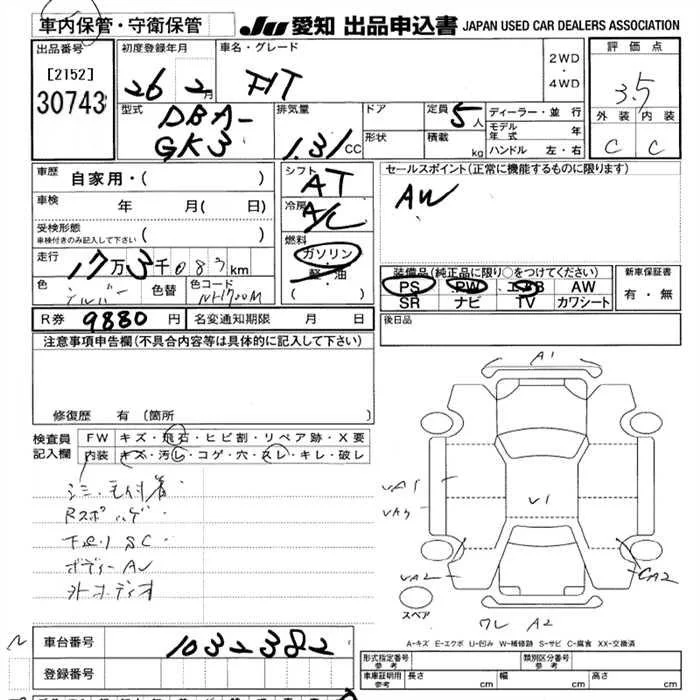 車内保管・守衛保管
JU 愛知 出品申込書 JAPAN USED CAR DEALERS ASSOCIATION
出品番号
[2152]
30743
初度登録年月
26 2月
車名・グレード
FIT
2WD
・
4WD
評価点
3.5
外装 内装
C C
型式
DBA-
GK3
排気量
1.31 CC
ドア
形状
定員
5人
積載
kg
ディーラー・並行
モデル年式 年
ハンドル 左・右
車歴
自家用・( )
車検
年 月( 日)
受検形態
車検付きのみ記入して下さい ( )
走行
17万3千083km
色
シルバー
色替
色コード
NH700M
シフト
AT
冷房
A/C
燃料
ガソリン
軽・油
( )
セールスポイント(正常に機能するものに限ります)
AW
装備品(純正品に限り○をつけてください)
PS PW エアB AW
SR ナビ TV カワシート
新車保証書
有・無
R券 9880円
名変通知期限 月 日
後日品
注意事項申告欄(不具合内容等は具体的に記入して下さい)
修復歴 有(箇所
検査員
記入欄
FW キズ・飛石・ヒビ割・リペア跡・X要
内装 キズ・汚レ・コゲ・穴・スレ・キレ・破レ
シミ・毛付着
ボディーAU
A1
UA1
UA3
U1
UA2
CA2
スペア
ワレ A2
A-キズ E-エクボ U-凹み W-補修跡 S-サビ C-腐食 XX-交換済
車台番号
1032382
登録番号
形式指定番号
参考
類別区分番号
参考
車庫証明用
参考
長さ cm 幅 cm 高さ cm